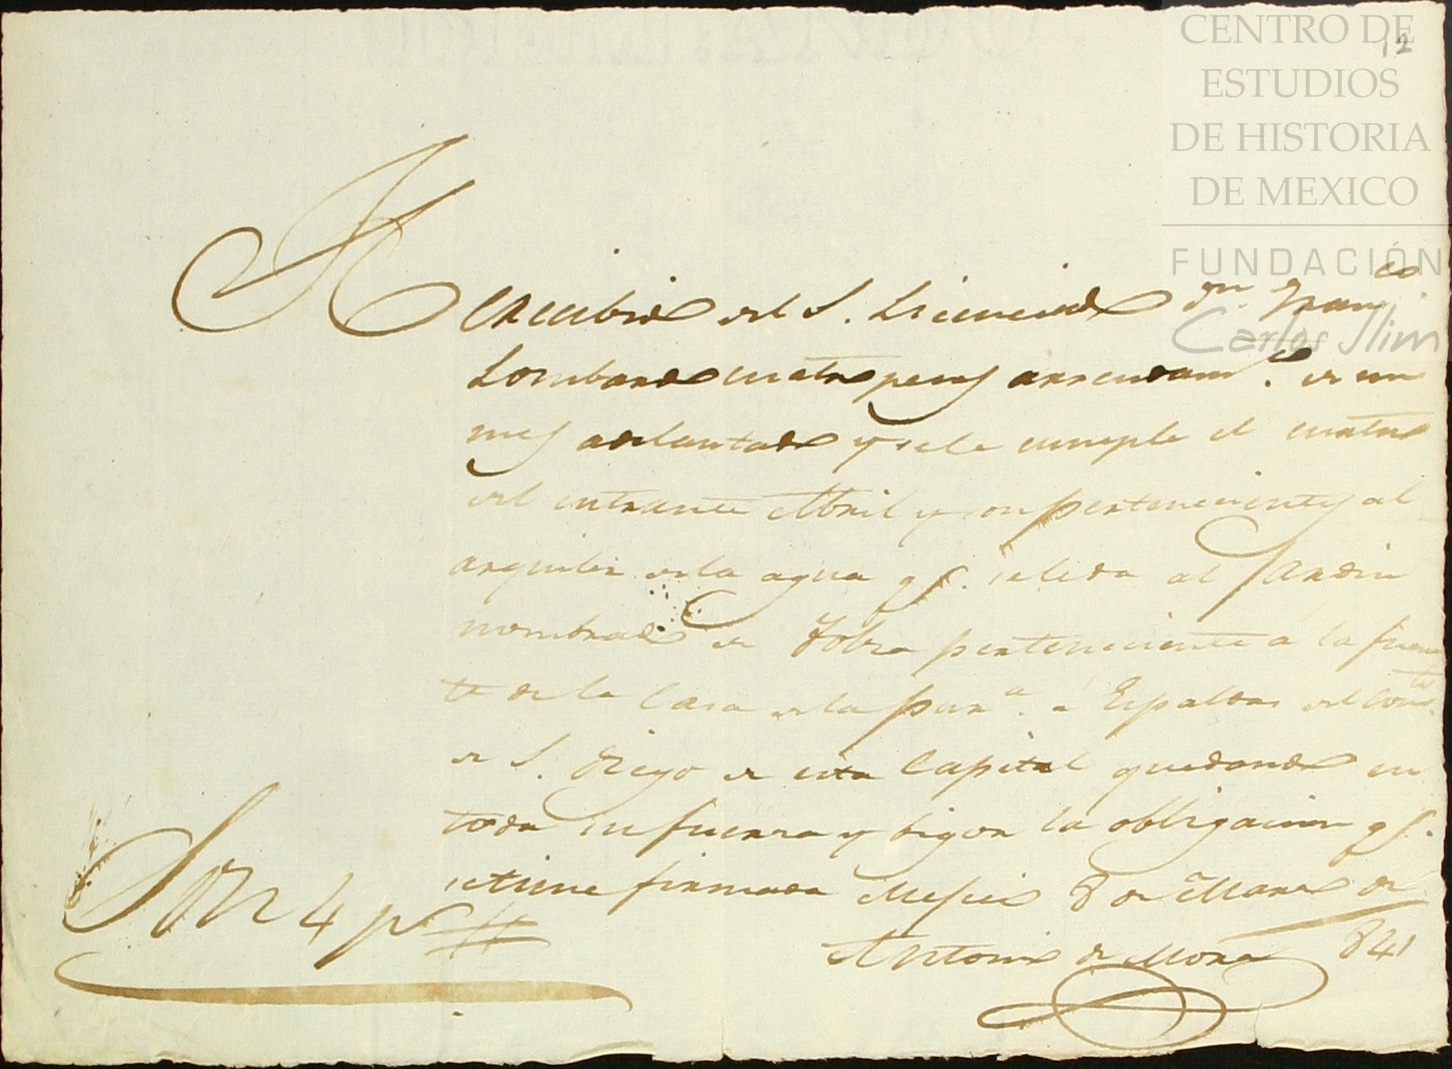 CENTRO DE
ESTUDIOS
DE HISTORIA
DE MEXICO
FUNDACIÓN
Carlos Slim
12
Recibi del S. Licenciado Dn. Franco
Lombardo cuatro pesos arrendamto. de un
mes adelantado y se le cumple el cuatro
del entrante Abril y son pertenecientes al
arquiler de la agua qe. se le da al Jardin
nombrado de Tobra perteneciente a la fuen
te de la Casa de la Pura. a Espaldas del Convto.
de S. Diego de esta Capital quedando en
toda su fuerza y bigor la obligacion qe.
se tiene firmada Mejico 8 de Marzo de
841
Antonio de Mora
Son 4 ps